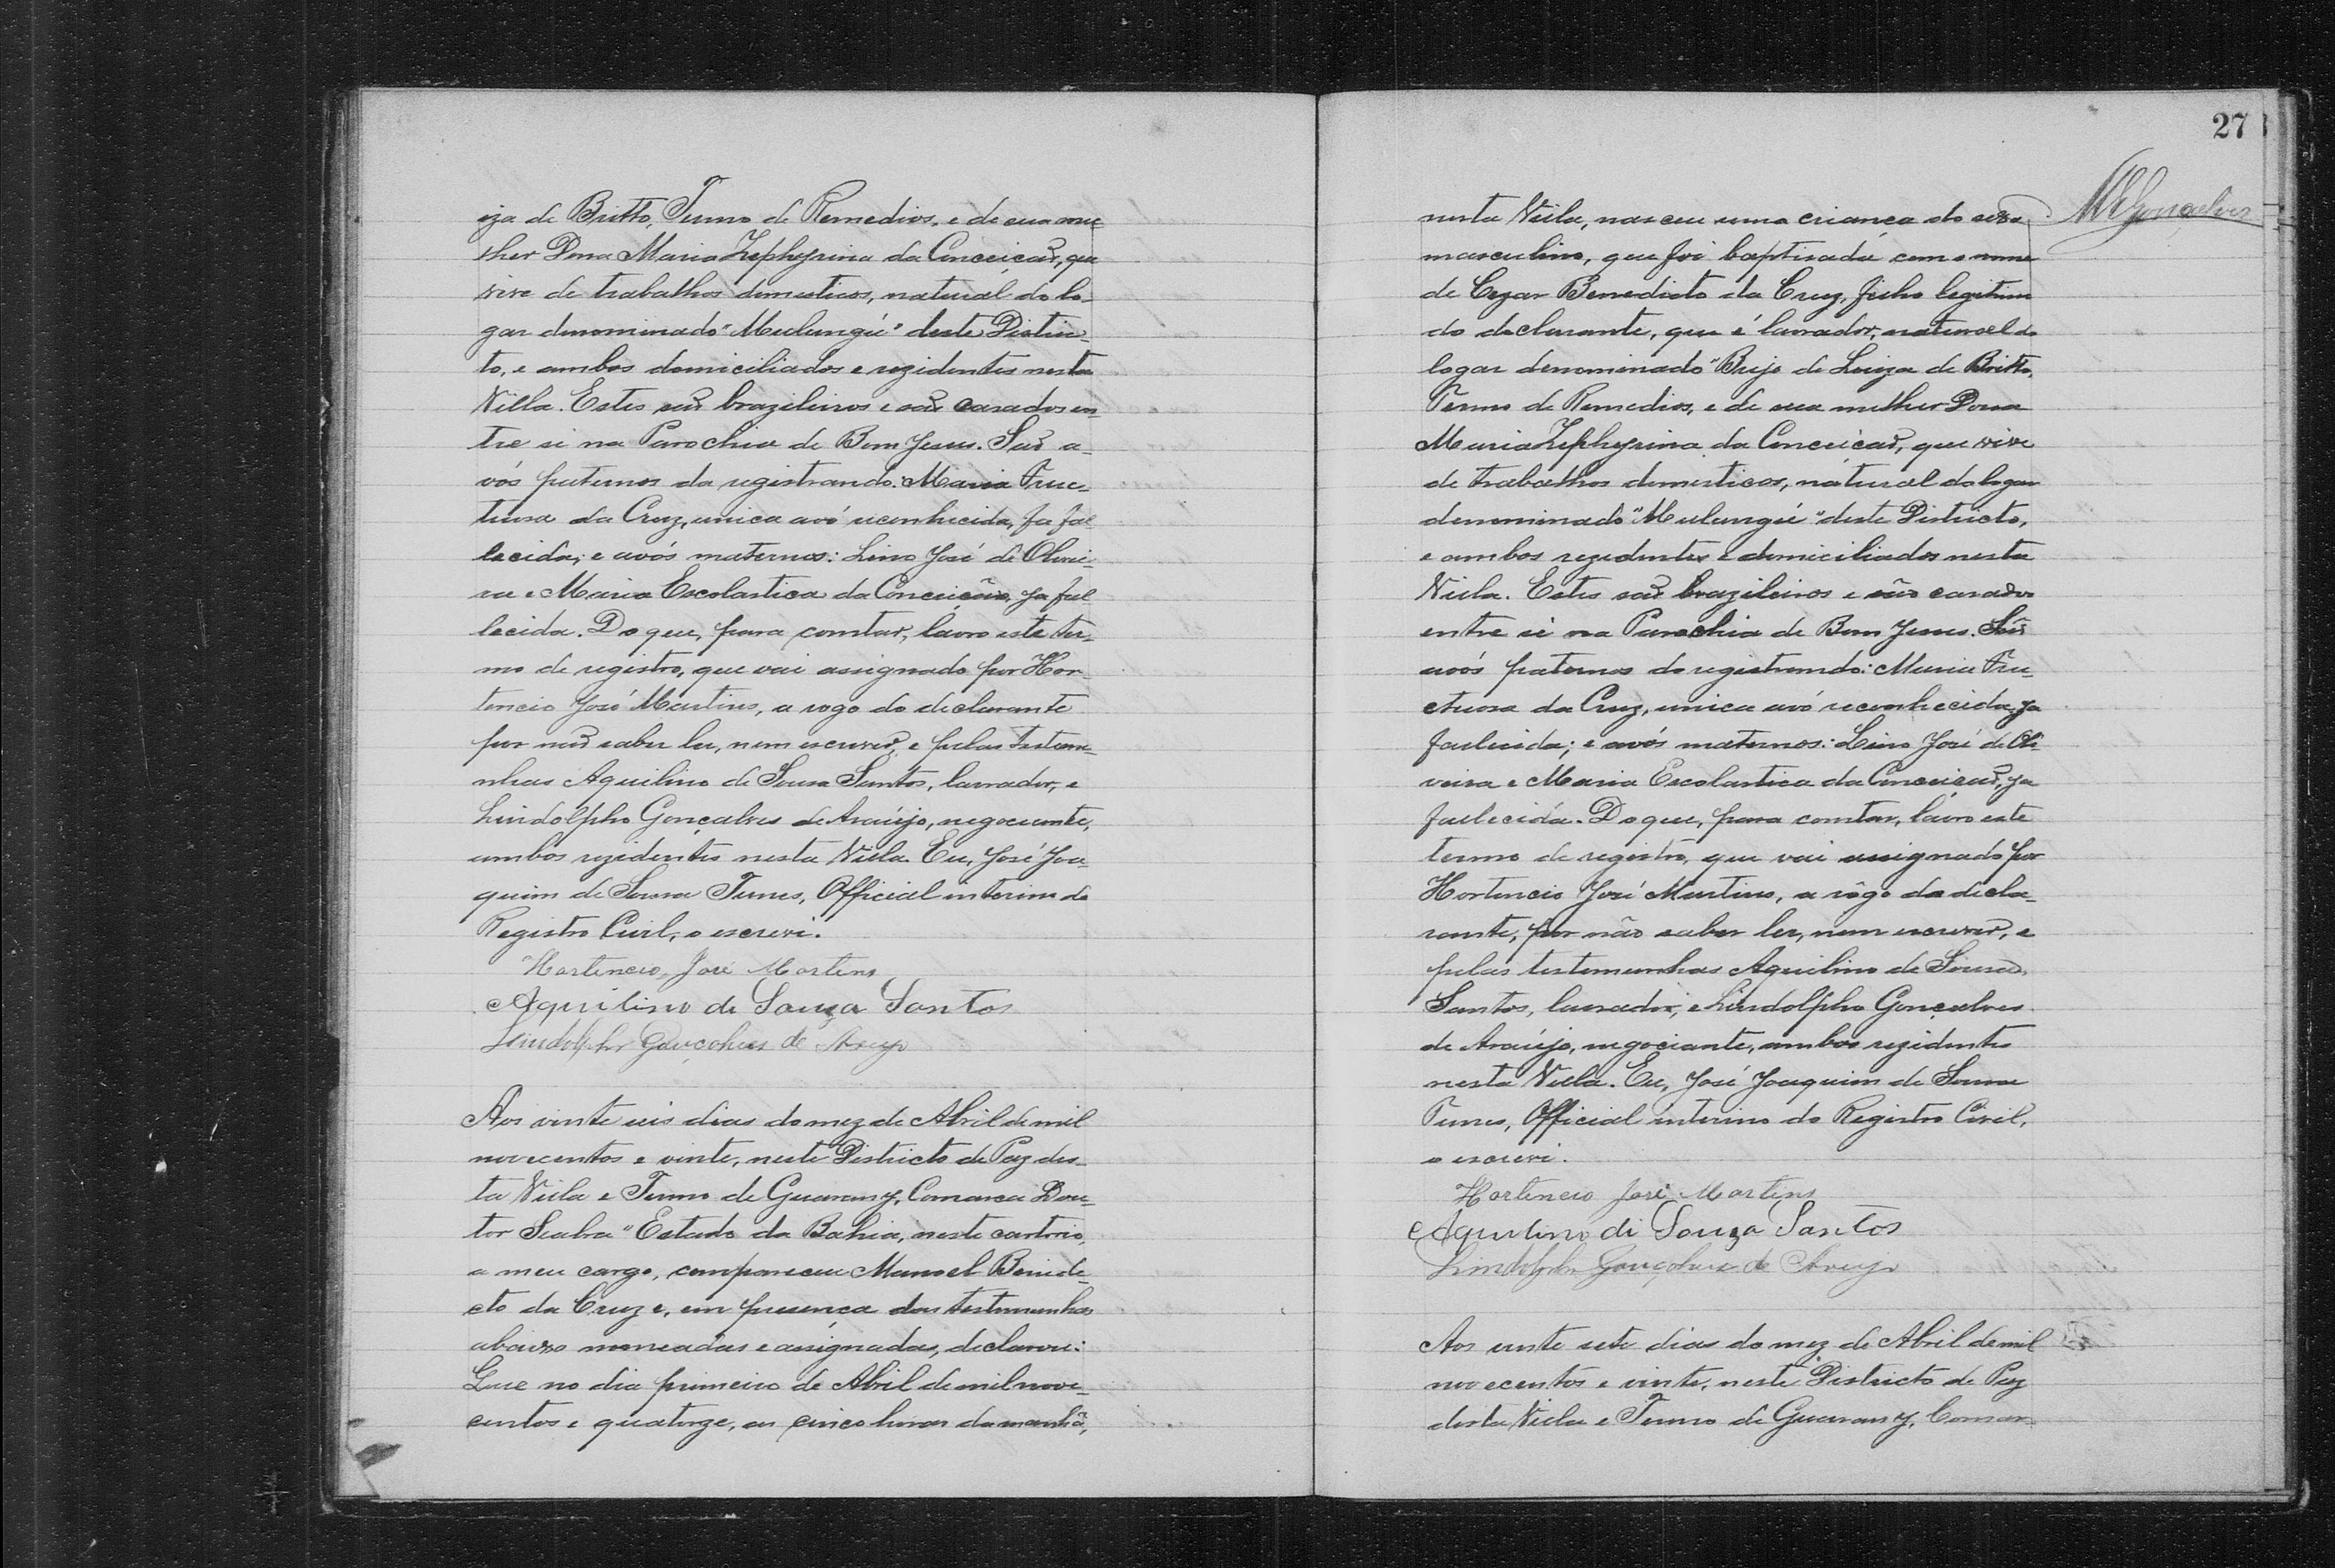 iza de Britto, Termo de Remedios, e de sua mu
lher Dona Maria Zephyrina da Conceição, que
vive de trabalhos domesticos, natural do lo-
gar denominado "Mulungú" deste Distric-
to, e ambos domiciliados e rezidentes nesta
Villa. Estes são brazileiros e são casados en-
tre si na Parochia de Bom Jesus. São a-
vós paternos da registrando: Maria Fruc-
tuosa da Cruz, unica avó reconhecida, ja fal
lecida; e avós maternos: Lino José de Olivei-
ra e Maria Escolastica da Conceição, ja fal-
lecida. Do que, para constar, lavro este ter-
mo de registro, que vai assignado por Hor-
tencio José Martins, a rogo do declarante
por não saber ler, nem escrever, e pelas testemu-
nhas Aquilino de Sousa Santos, lavrador, e
Lindolpho Gonçalves de Araújo, negociante,
ambos rezidentes nesta Villa. Eu, José Joa-
quim de Sousa Tunes, Official interino do
Registro Civil, o escrevi.
Hortencio José Martins
Aquilino de Souza Santos
Lindolpho Gonçalves de Araujo
Aos vinte seis dias do mez de Abril de mil
novecentos e vinte, neste Districto de Paz des-
ta Villa e Termo de Guarany, Comarca Dou-
tor Seabra" Estado da Bahia, neste cartorio,
a meu cargo, compareceu Manoel Benede-
cto da Cruz e, em presença das testemunhas
abaixo nomeadas e assignadas, declarou:
Que no dia primeiro de Abril de mil nove-
centos e quatorze, as cinco horas da manhã,
27
MVGonçalves
nesta Villa, nasceu uma criança do sexo
masculino, que foi baptisada com o nome
de Cezar Benedicto da Cruz, filho legitimo
do declarante, que é lavrador, natural do
logar denominado "Brejo de Luiza de Britto,
Termo de Remedios, e de sua mulher Dona
Maria Zephyrina da Conceição, que vive
de trabalhos domesticos, natural do logar
denominado "Mulungú" deste Districto,
e ambos rezidentes e domiciliados nesta
Villa. Estes são brazileiros e são casados
entre si na Parochia de Bom Jesus. São
avós paternos do registrando: Maria Fru-
ctuosa da Cruz, unica avó reconhecida, ja
fallecida; e avós maternos: Lino José de Oli-
veira e Maria Escolastica da Conceição, ja
fallecida. Do que, para constar, lavro este
termo de registro, que vai assignado por
Hortencio José Martins, a rôgo do decla-
rante, por não saber ler, nem escrever, e
pelas testemunhas Aquilino de Sousa
Santos, lavrador, e Lindolpho Gonçalves
de Araújo, negociante, ambos rezidentes
nesta Villa. Eu, José Joaquim de Sousa
Tunes, Official interino do Registro Civil,
o escrevi.
Hortencio José Martins
Aquilino di Souza Santos
Lindolpho Gonçalves de Araujo
Aos vinte sete dias do mez de Abril de mil
novecentos e vinte, neste Districto de Paz
desta Villa e Termo de Guarany, Comar-